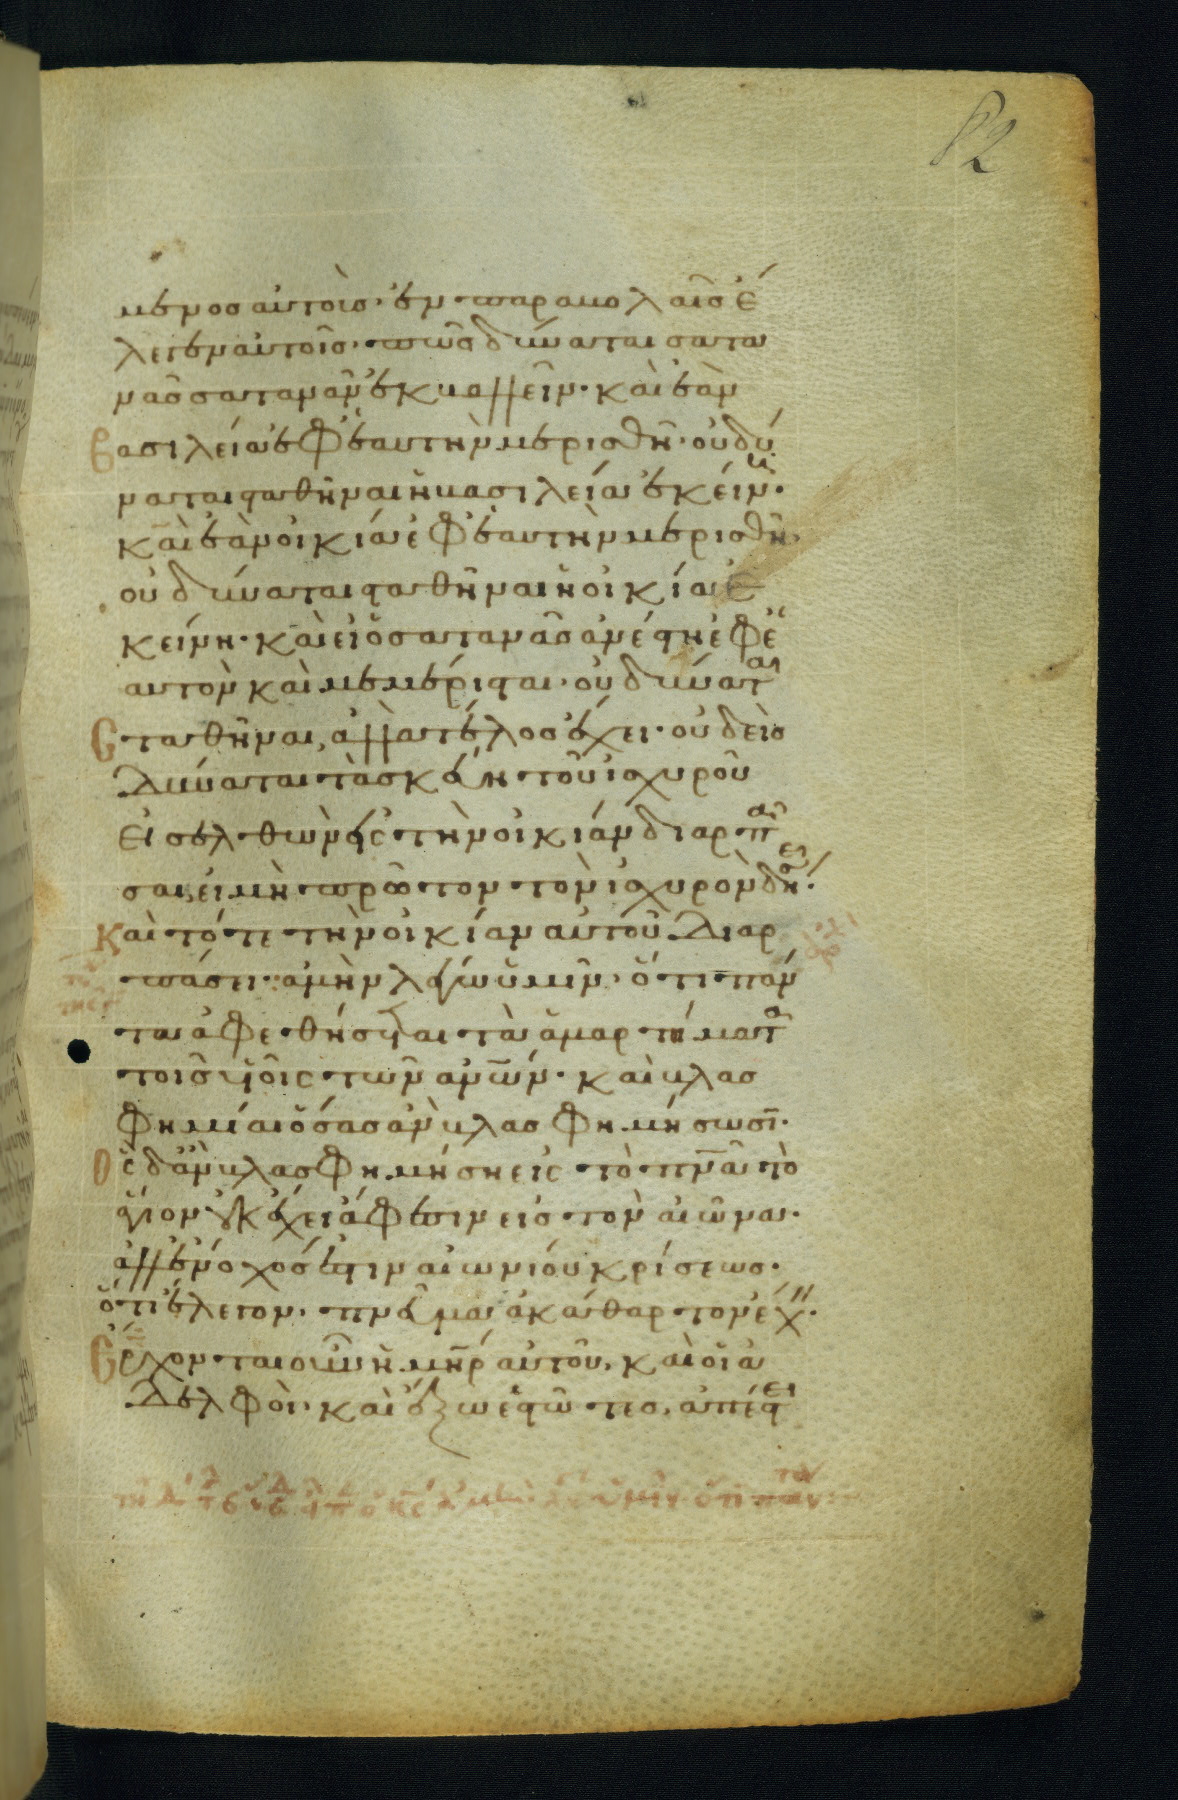 82
μενος αυτοις· εν παραβολαῖς ἔ
λεγεν αυτοῖς· πῶς δύναται σατα
νᾶς σατανᾶν ἐκβαλλεῖν· καὶ ἐὰν
βασιλεία ἐφ ἑαυτὴν μερισθῆ· οὐ δύ
ναται σταθῆναι ἡ βασιλεία ἐκείνη·
καὶ ἐὰν οἰκία ἐφ ἑαυτὴν μερισθῆ·
οὐ δύναται σταθῆναι ἡ οἰκία ἐ
κείνη· καὶ εἰ ὁ σατανᾶς ἀνέστη ἐφ ἑ
αυτὸν καὶ μεμέρισται· οὐ δύναται
σταθῆναι, ἀλλὰ τέλος ἔχει· οὐδεὶς
δύναται τὰ σκεύη τοῦ ἰσχυροῦ
εἰσελθὼν εἰς τὴν οἰκίαν διαρπά
σαι, εἰ μὴ πρῶτον τὸν ἰσχυρὸν δήσει·
Καὶ τότε τὴν οἰκίαν αὐτοῦ διαρ
πάσει· ἀμὴν λέγω ὑμῖν· ὅτι πάν
τα ἀφεθήσεται τὰ ἁμαρτήματα
τοῖς υἱοῖς τῶν ἀνων· καὶ βλασ
φημίαι ὅσας ἀν βλασφημήσωσῖ·
Ὃς δ ἂν βλασφημήση εἰς τὸ πνα τὸ
ἅγιον οὐκ ἔχει ἄφεσιν εἰς τὸν αἰῶνα·
ἀλλ ἔνοχός ἐστιν αἰωνίου κρίσεως·
ὅτι ἔλεγον· πνεῦμα ἀκάθαρτον ἔχει·
Ἔρχονται οὖν ἡ μηρ αὐτοῦ, καὶ οἱ ἀ
δελφοὶ· καὶ ἔξω ἑστῶτες, ἀπέστει
ἀμὴν λέγω ὑμῖν ὅτι πάντα